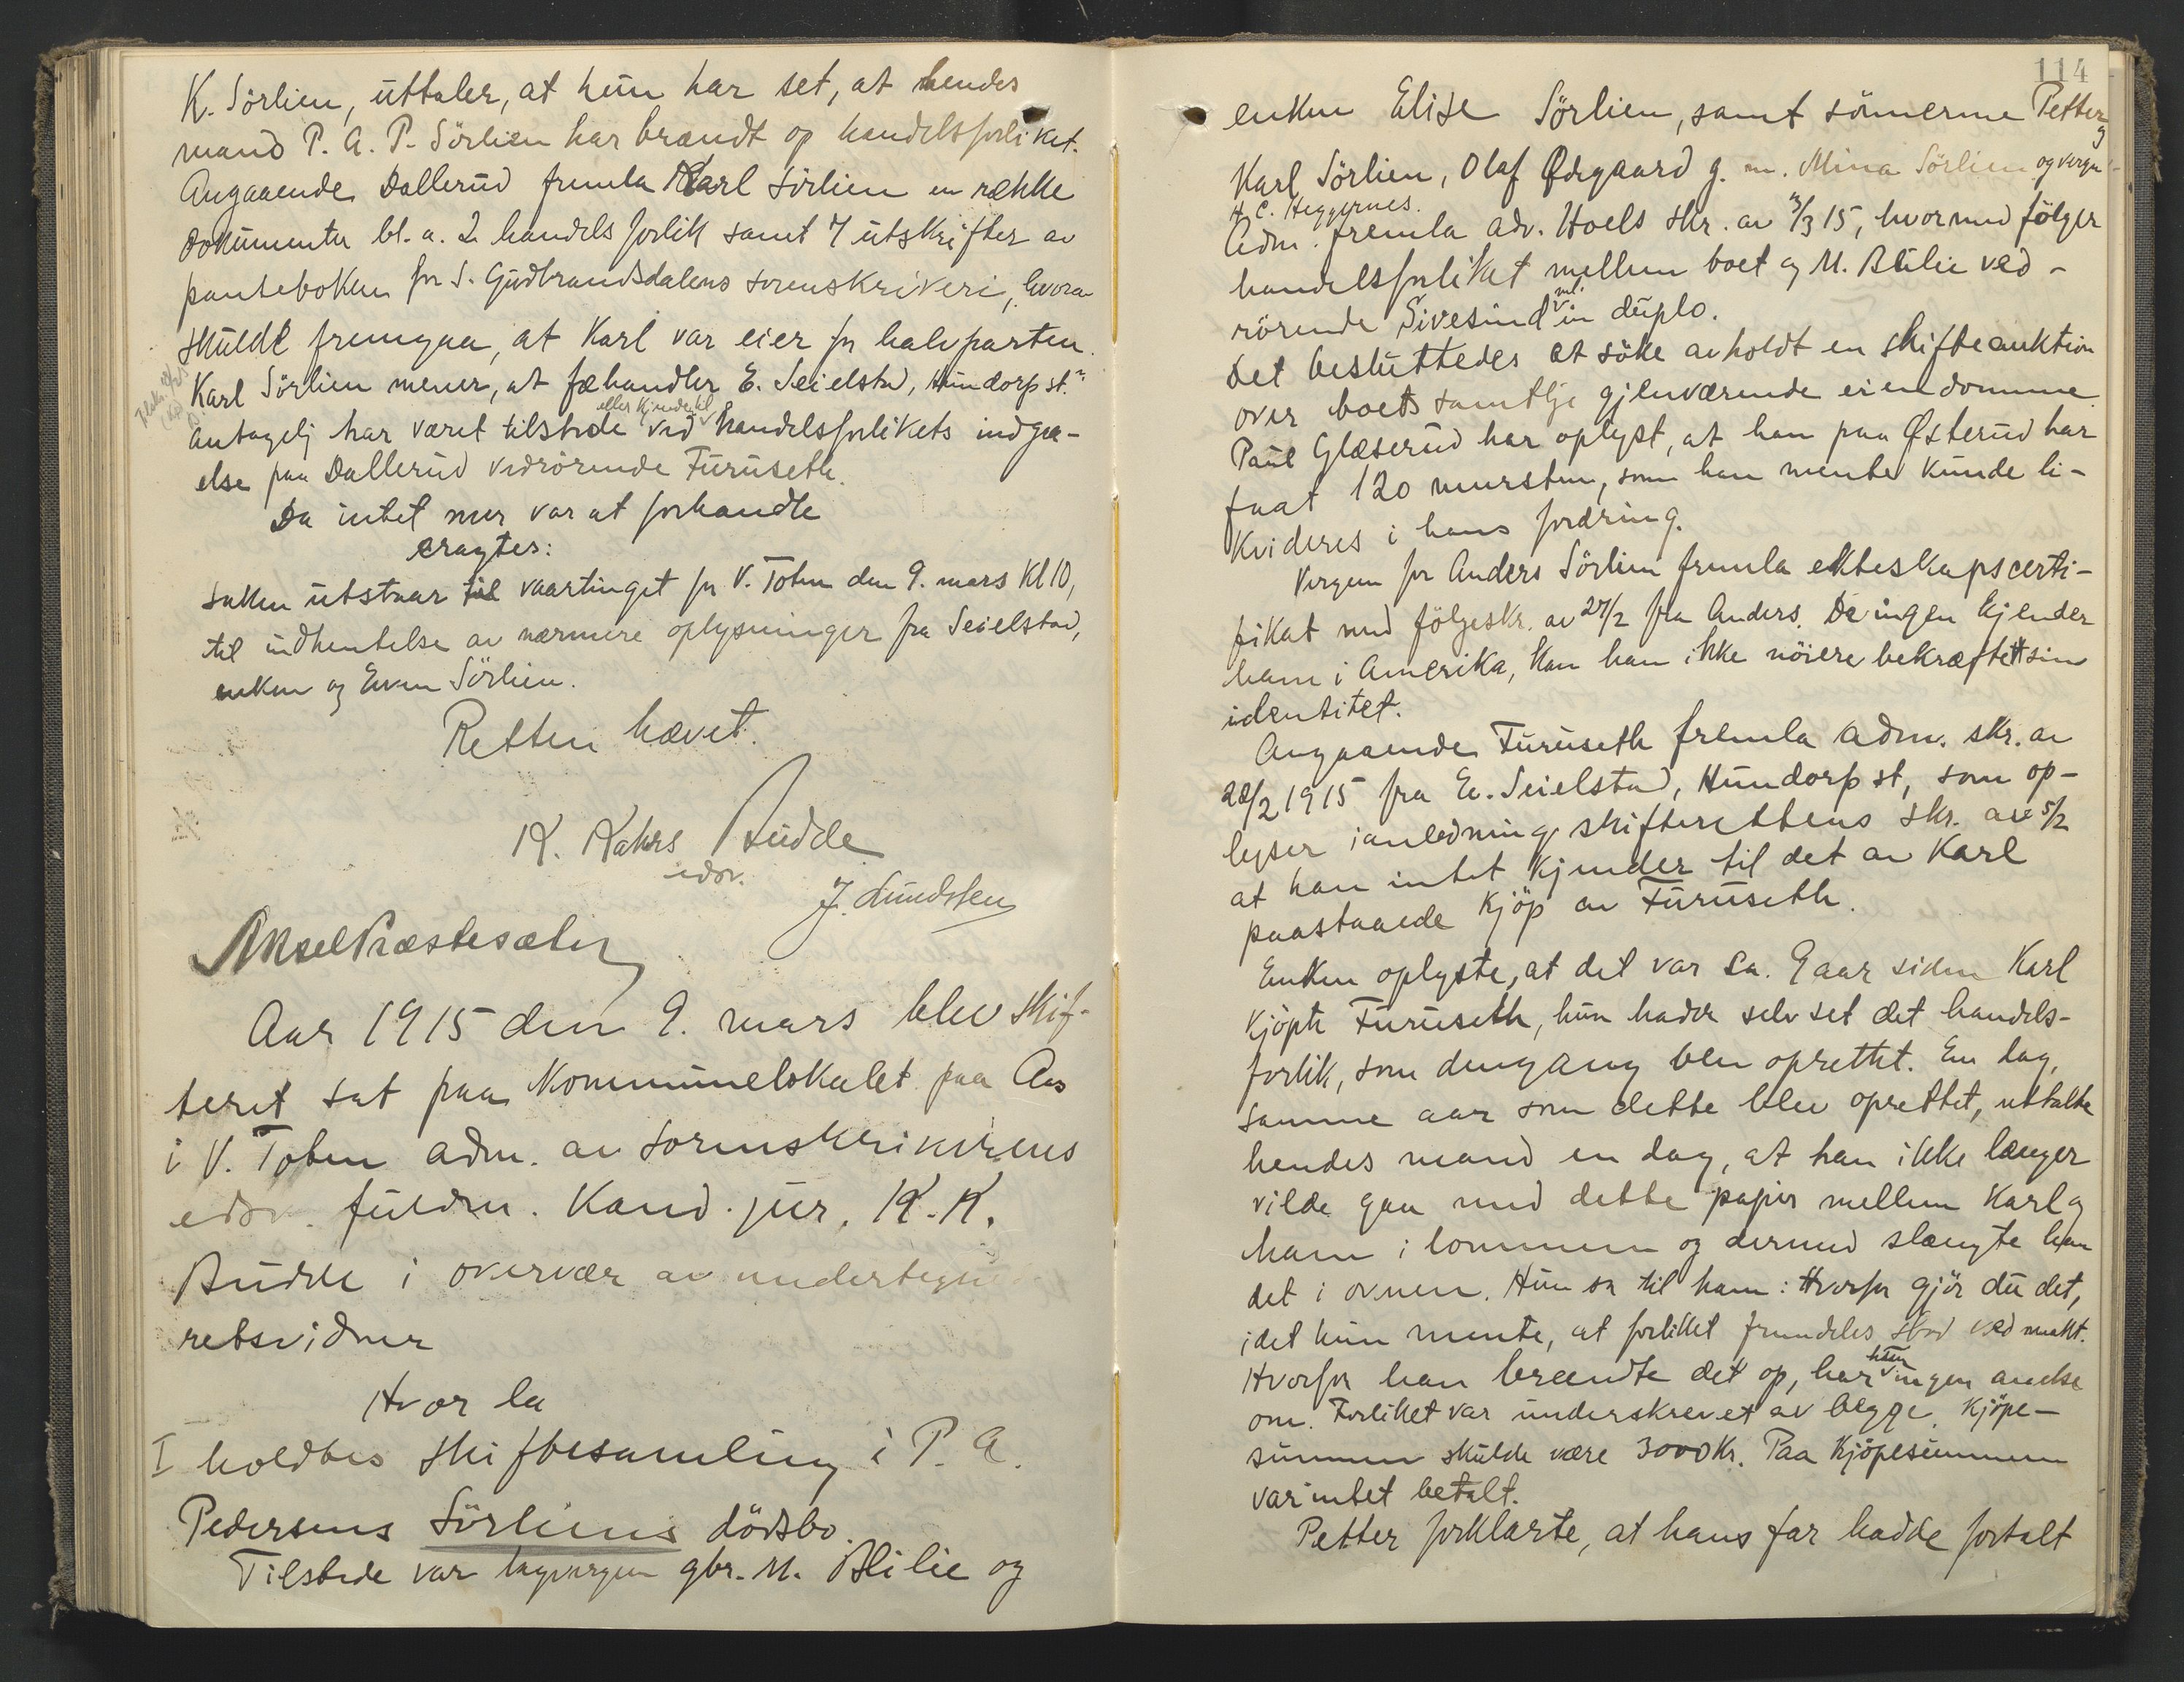 K. Sörlien, uttaler, at hun har set, at hendes
mand P. A. P. Sörlien har brændt op handelsforliket.
Angaaende Dallerud fremla Karl Sörlien en række
dokumenter bl. a. 2 handelsforlik samt 7 utskrifter av
panteboken for S. Gudbrandsdalens sorenskriveri, hvorav
skulde fremgaa, at Karl var eier for halvparten.
Karl Sörlien mener, at fæhandler E. Seielstad, Hundorp st.
eller kjendt til
antagelig har været tilstede ved handelsforlikets indgaa-
else paa Dallerud vedrörende Furuseth.
Da intet mer var at forhandle
eragtes:
Saken utstaar til vaartinget for V. Toten den 9. mars Kl 10,
til indhentelse av nærmere oplysninger fra Seielstad,
enken og Even Sörlien.
Retten hævet.
K. Kahrs Budde
edsv.
J. Lundsten
Aksel Præstesæter
Aar 1915 den 9. mars blev skif-
teret sat paa Kommunelokalet paa Aas
i V. Toten adm. av sorenskriverens
edsv. fuldm. Kand. jur. K. K.
Budde i overvær av undertegnede
retsvidner
Hvor la
I holdtes skiftesamling i P. A.
Pedersens Sörliens dödsbo.
Tilstede var lagvergen gbr. M. Blilie og
114
enken Elise Sörlien, samt sönnerne Petter og
Karl Sörlien, Olaf Ødegaard g. m. Mina Sörlien og verge
H. C. Heggernes.
Adm. fremla adv. Hoels skr. av 3/3 15, hvormed fölger
handelsforliket mellem boet og M. Blilie ved-
rörende Sivesind in duplo.
Det besluttedes at söke avholdt en skifteauktion
over boets samtlige gjenværende eiendomme.
Paul Glæserud har oplyst, at han paa Østerud har
faat 120 mursten, som han mente kunde li-
kvideres i hans fordring.
Vergen for Anders Sörlien fremla ekteskapscerti-
fikat med fölgeskr. av 27/2 fra Anders. Da ingen kjender
ham i Amerika, kan han ikke nöiere bekræftet sin
identitet.
Angaaende Furuseth fremla adm. skr. av
28/2 1915 fra E. Seielstad, Hundorp st, som op-
lyser i anledning skifterettens skr. av 5/2
at han intet kjender til det av Karl
paastaaede kjöp av Furuseth.
Enken oplyste, at det var ca. 9 aar siden Karl
kjöpte Furuseth, hun hadde selv set det handels-
forlik, som dengang blev oprettet. En dag,
samme aar som dette blev oprettet, uttalte
hendes mand en dag, at han ikke længer
vilde gaa med dette papir mellem Karl og
ham i lommen og dermed slængte han
det i ovnen. Hun sa til ham: Hvorfor gjör du det,
idet hun mente, at forliket fremdeles stod ved makt.
hun
Hvorfor han brændte det op, har ingen anelse
om. Forliket var underskrevet av begge. Kjöpe-
summen skulde være 3000 Kr. Paa kjöpesummen
var intet betalt.
Petter forklarte, at hans far hadde fortalt